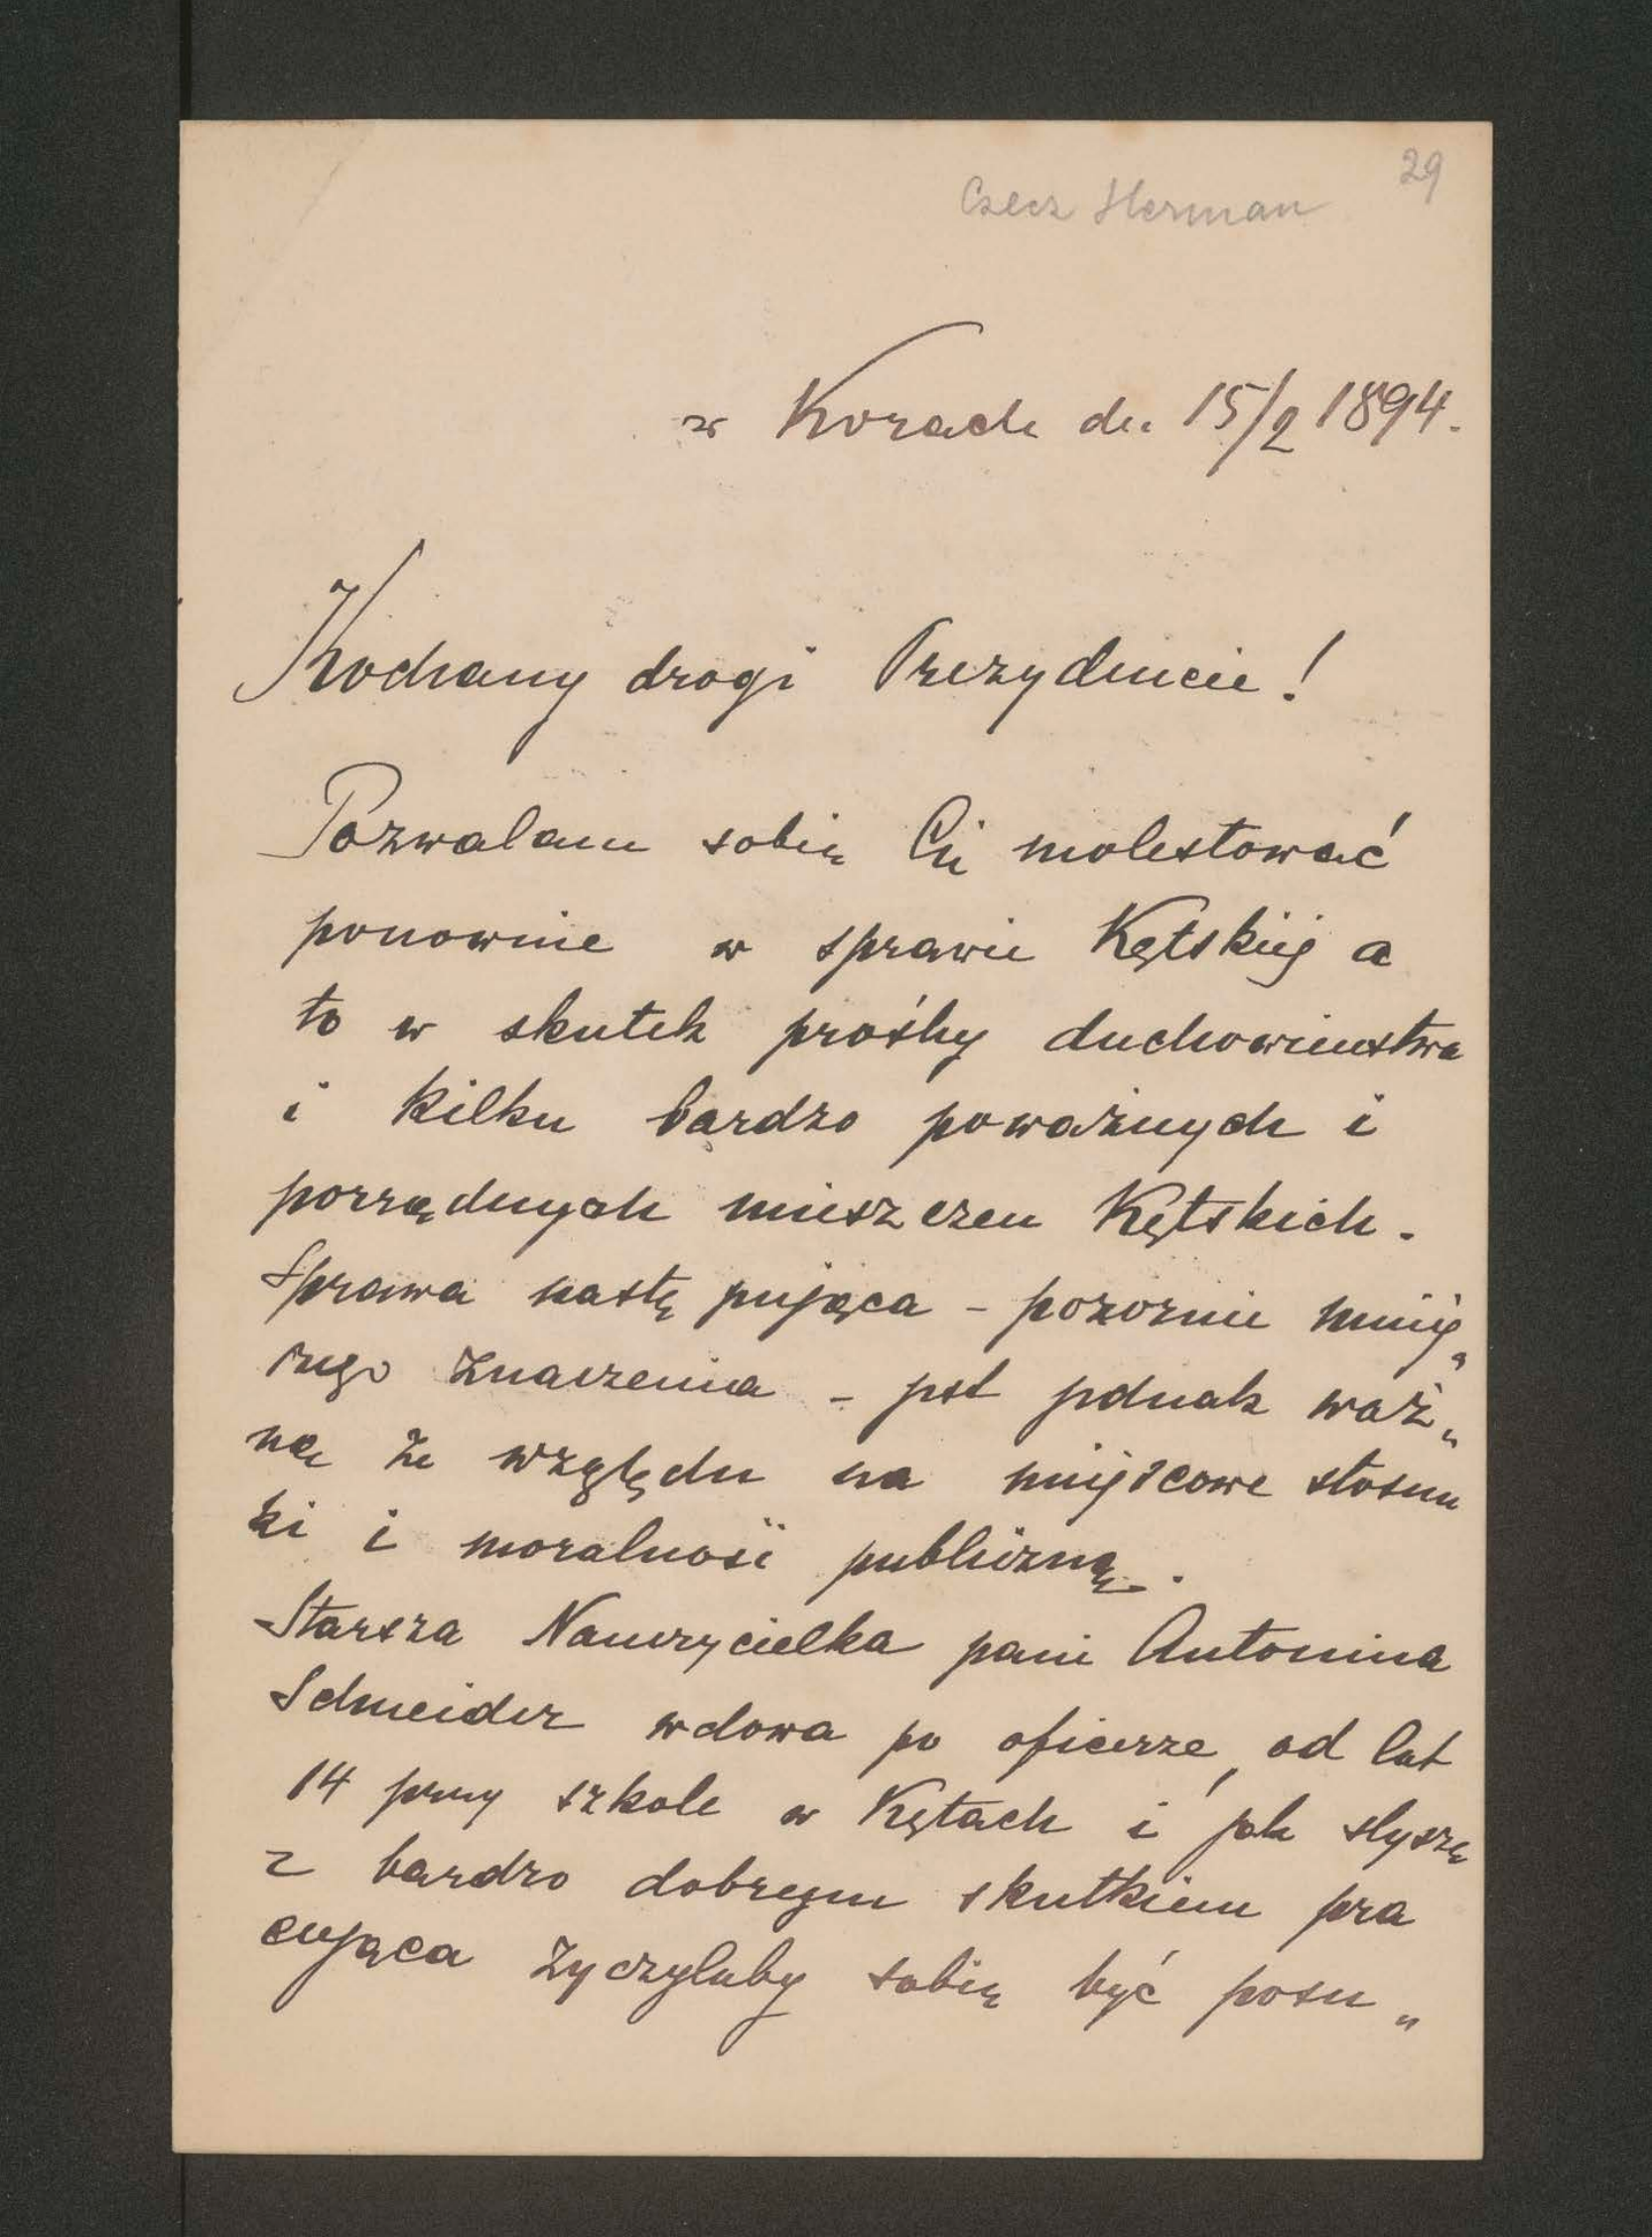 29
Czecz Herman
w Kozach dn. 15/2 1894.
Kochany drogi Prezydencie!
Pozwalam sobie Cię molestować
ponownie w sprawie Kętskiej a
to w skutek prośby duchowieństwa
i kilku bardzo poważnych i
porządnych mieszczen Kętskich.
Sprawa nastę pująca - pozornie mniej„
szego znaczenia - jest jednak waż„
ną ze względu na miejscowe stosun
ki i moralność publiczną.
Starsza Nauczycielka pani Antonina
Schneider wdowa po oficerze, od lat
14 przy szkole w Kętach i jak słyszę
z bardzo dobrym skutkiem pra
cująca życzyłaby sobie być posu„